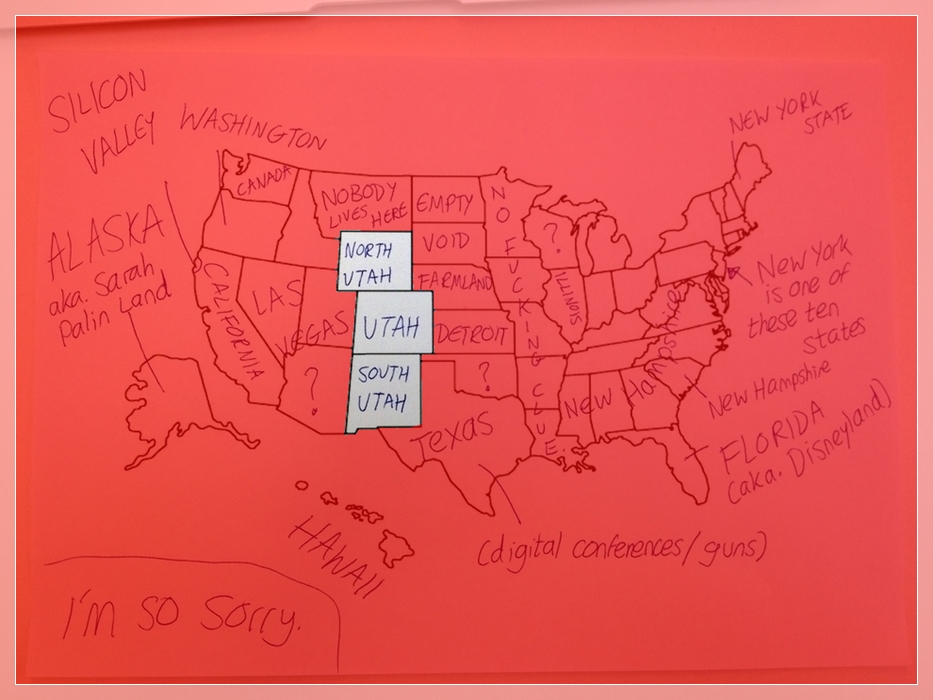 SILICON
VALLEY
WASHINGTON
NEW YORK
STATE
CANADA
NOBODY
LIVES HERE
EMPTY
NO FUCKING CLUE.
?
ALASKA
aka. Sarah
Palin Land
NORTH
UTAH
VOID
CALIFORNIA
LAS
VEGAS
FARMLAND
ILLINOIS
New York
is one of
these ten
states
UTAH
DETROIT
?
SOUTH
UTAH
?
New Hampshire
New Hampshire
Texas
FLORIDA
(aka. Disneyland)
HAWAII
(digital conferences/guns)
I'm so sorry.